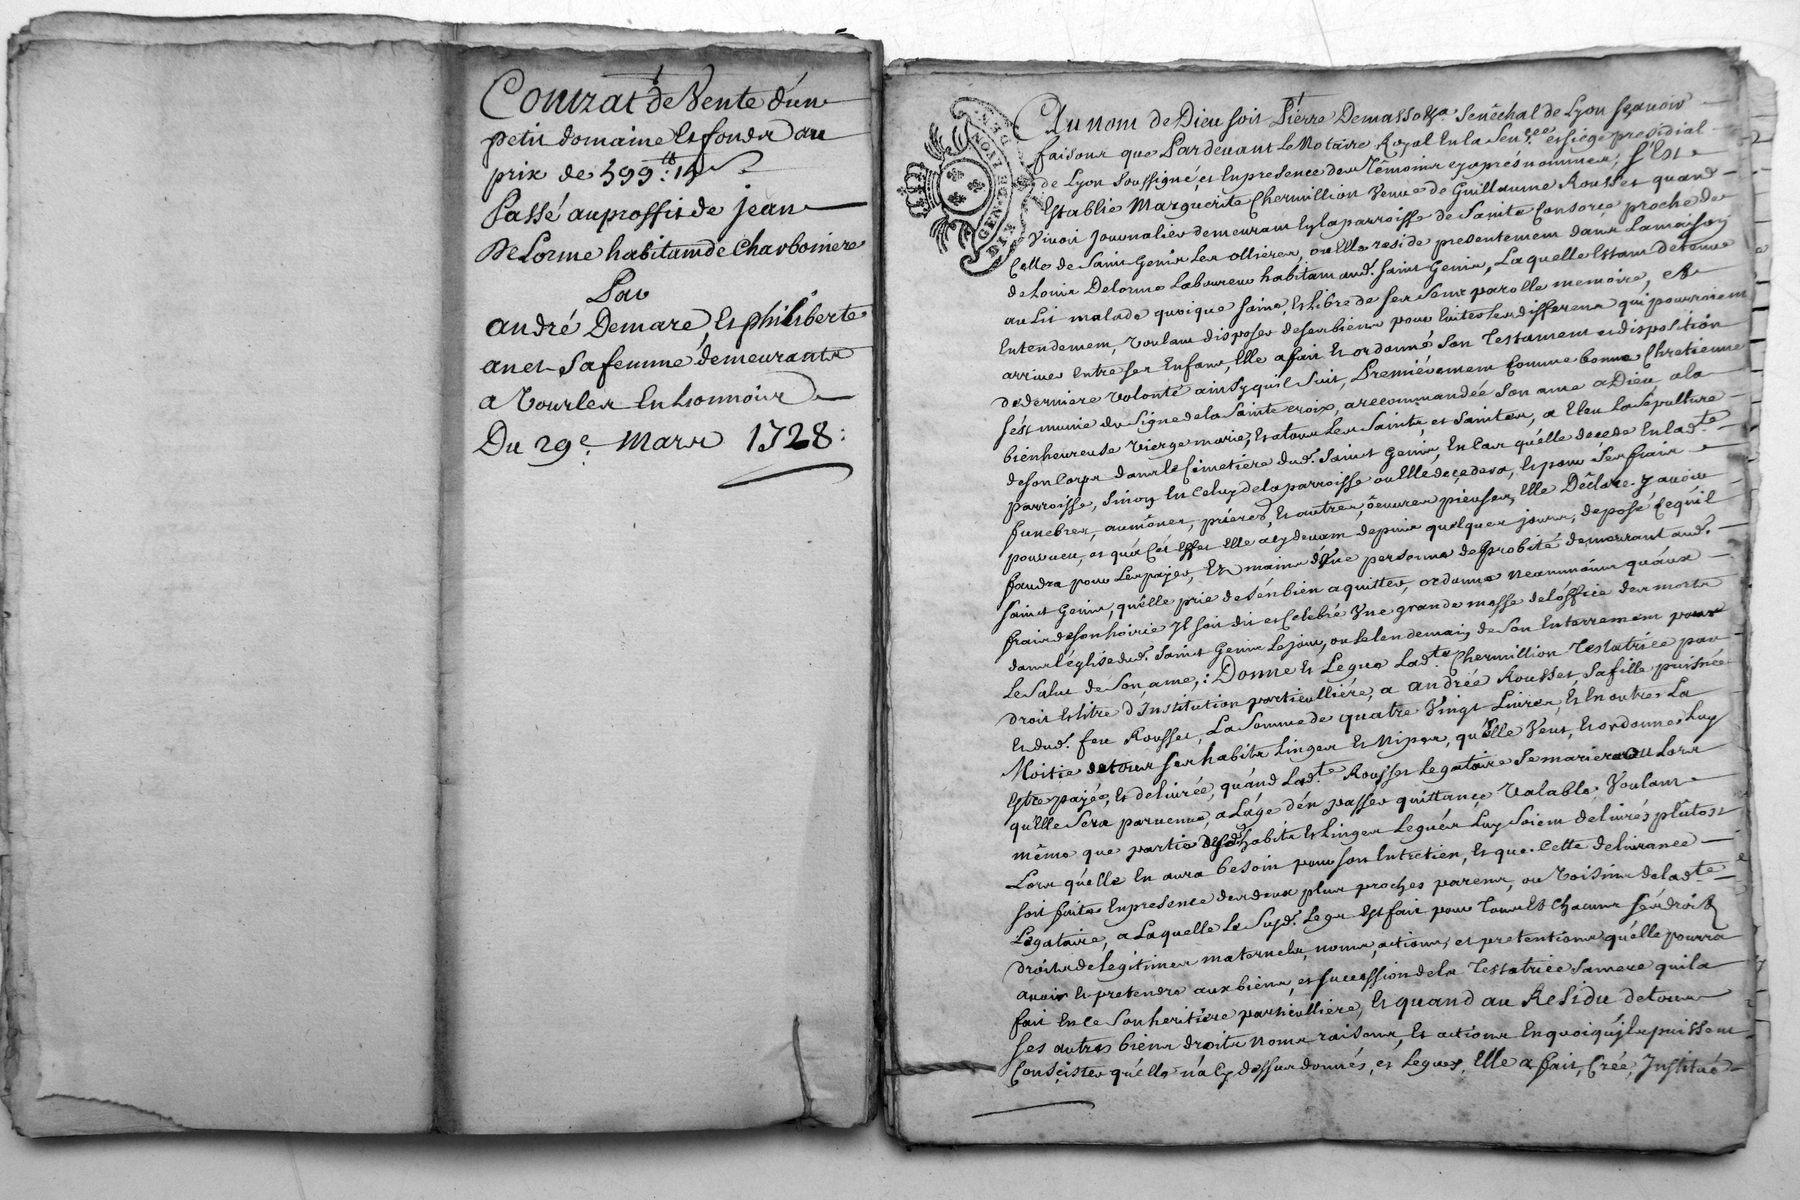 Contrat de Vente d'un
petit domaine et fonds au
prix de 599 tt: 14 s
Passé au proffit de jean
De Lorme habitant de Charboniere
Par
andré Demare, et philiberte
anet sa femme demeurants
a Tourles en Lionnois
Du 29e. Mars 1728:
GENERALITE DE LYON
Au nom de Dieu soit Pierre Demasso Senéchal de Lyon sçavoir
faisons que Pardevant Le Notaire Royal En la Senéee. et siége presidial
de Lyon soussigné, et En presence des Témoins cy aprés nommés, s'Est
Establie Marguerite Chermillion Veuve de Guillaume Rousset quand
Vivoit Journalier demeurant En la parroisse de Sainte Consorce proche de
Celle de Saint Genis Les ollieres, ou Elle reside presentement dans La maison
de Louis Delorme Laboureur habitant aud. Saint Genis, Laquelle Estant detenue
au Lit malade quoique saine, Et libre de ses sens parolle memoire, et
Entendement, Voulant disposer de ses biens pour Eviter Les differens qui pourroient
arriver Entre ses Enfans, Elle a fait Et ordonné son Testament et disposition
de derniere Volonté ainsy qu'il suit, Premiérement Comme bonne Chretienne
s'est munie du signe de la Sainte croix, a recommandée son ame a Dieu, a la
bienheureuse Vierge marie, Et a tous Les Saints et Saintes, a Eleu La Sepulture
de son Corps dans le Cimetiére dud. Saint Genis, En Cas qu'elle decede En lad.te
parroisse, sinon En Celuy de la parroisse ou Elle decedera, Et pour ses frais
funebres, aumônes, priéres, Et autres, oeuvres pieuses, Elle Déclare y avoir
pourveu, et qu'a Cét Effet Elle a cy devant depuis quelques jours, deposé Ce qu'il
faudra pour Les payer, Ez mains d'Une personne de probité demeurant aud.
Saint Genis, qu'elle prie de s'en bien aquitter, ordonne neanmoins qu'aux
frais de son hoirie Il soit dit et Celebré Une grande messe de l'office des morts
dans l'églisedud. Saint Genis Le jour, ou Le lendemain de son Enterrement pour
Le salut de son ame,: Donne Et Legue Lad.te Chermillion Testatrice par
droit Et titre d'Institution particulliére, a andrée Rousset, sa fille puisnée
Et dud. feu Rousset, La Somme de quatre Vingt Livres, Et En outre La
Moitié de tous ses habits Linges Et Nipes, qu'Elle Veut, Et ordonne, Luy
Estre payée, Et delivrée, quand Lad.te Rousset Legataire se mariera ou Lors
qu'elle sera parvenue, a L'age d'en passer quittance Valable, Voulant
même que partie desd. habits Et Linges Legués Luy soient delivrés plûtost
Lors qu'elle En aura besoin pour son Entretien, Et que Cette delivrance
soit faite En presence des deux plus proches parens, ou Voisins de lad.te
Legataire, a Laquelle Le susd. Legs Est fait pour Tous Et Chacuns ses droits
droits de legitimes maternels, noms, actions, et pretentions qu'elle pourra
avoir Et pretendre aux biens, et succession de la Testatrice sa mere qui la
fait En Ce son heritiére particulliere, Et quand au Residu de tous
ses autres biens droits Noms raisons, Et actions En quoi qu'ils puissent
Consister qu'elle n'a Cy dessus donnés, et Legués, Elle a fait, Créé, Institué